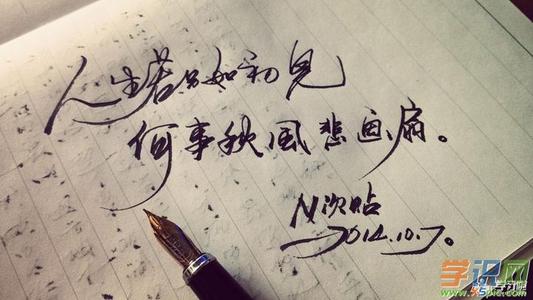 人生若只如初见
何事秋风悲画扇。
N次贴
2014.10.7。
学识网